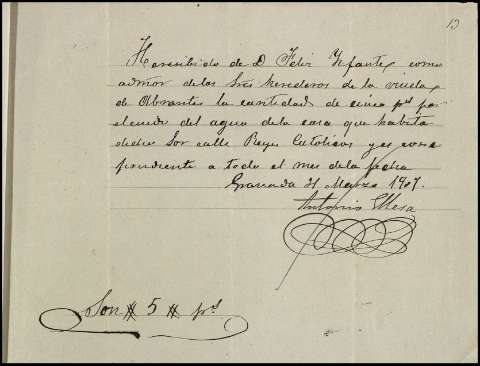 13
He resibido de D Felix Ynfantes como
admor de los Sres herederos de la viuda
de Abrantes la cantidad de cinco pts por
el cuido del agua de la casa que habita
dicho Sor calle Reyes Catolicos y es corres
pondiente a todo el mes de la fecha
Granada 31 Marzo 1907.
Antonio Mesa
Son # 5 # pts